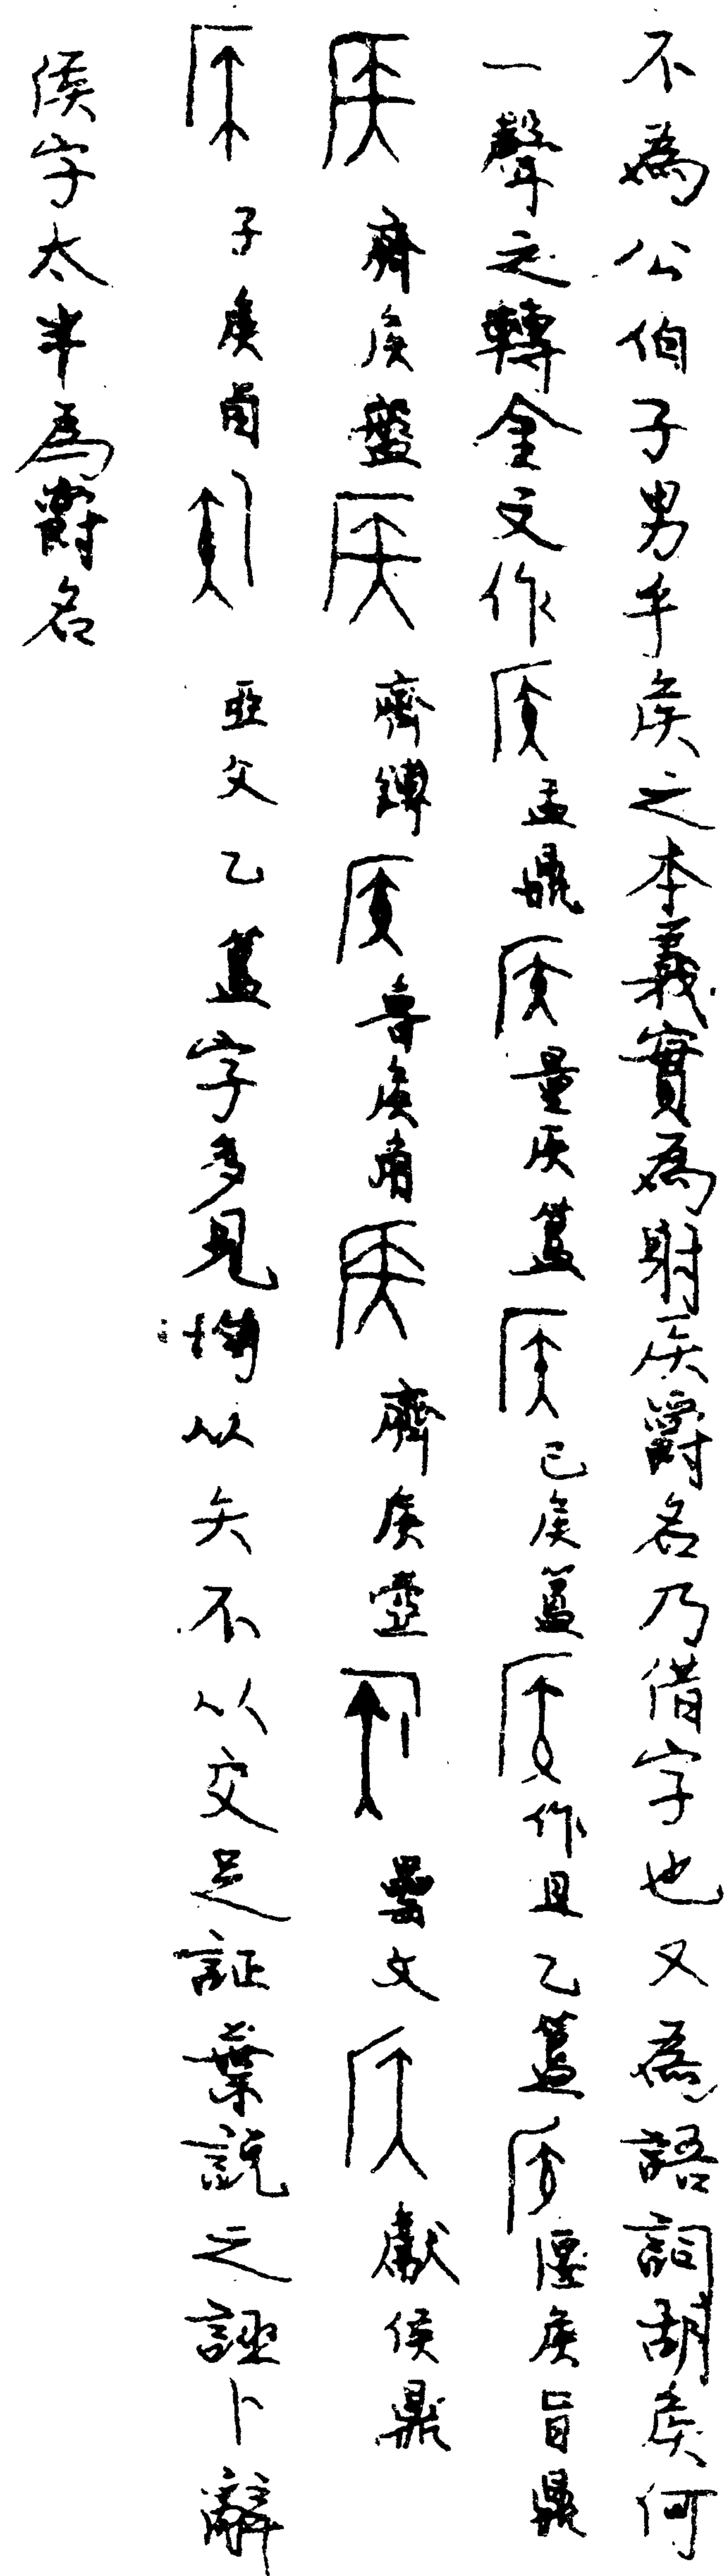 不為公伯子男乎矦之本義實為射矦爵名乃借字也又為語詞胡矦何
一聲之轉金文作盂鼎量矦簋己矦簋作且乙簋匽矦旨鼎
齊矦盤齊鎛魯矦角齊矦壺罍文獻侯鼎
子矦卣亞父乙簋字多見均从矢不从交足証葉説之誣卜辭
侯字太半為爵名